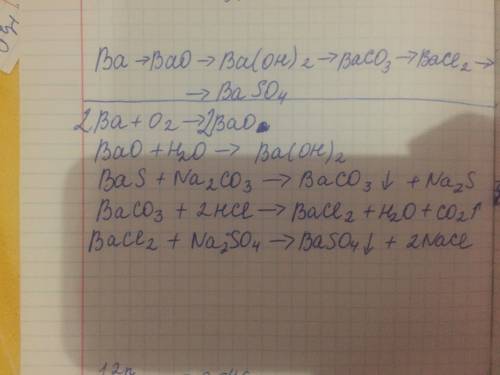 Ba → BaO → Ba(OH)2 → BaCO3 → BaCl2 →
→ BaSO4
2Ba + O2 → 2BaO
BaO + H2O → Ba(OH)2
BaS + Na2CO3 → BaCO3 ↓ + Na2S
BaCO3 + 2HCl → BaCl2 + H2O + CO2 ↑
BaCl2 + Na2SO4 → BaSO4 ↓ + 2NaCl